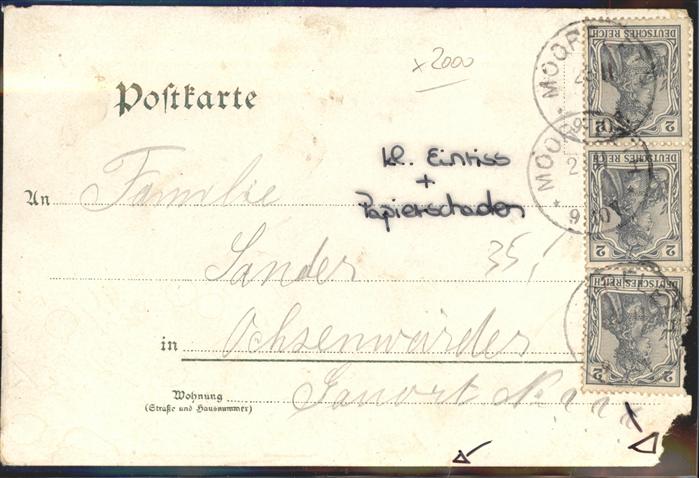 x 2000
Postkarte
kl. Einriss
+
Papierschaden
An Familie
Sander 35,
in Ochsenwärder
Wohnung
(Straße und Hausnummer)
DEUTSCHES REICH
2 2
DEUTSCHES REICH
2 2
DEUTSCHES REICH
2 2
MOOR
MOOR